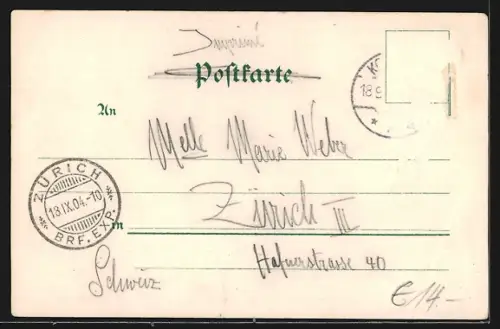 Imprimé
Postkarte
K
18.9
An
Melle Marie Weber
ZÜRICH
18.IX.04.-10
BRF. EXP.
in
Zürich III
Hafnerstrasse 40
Schweiz
€14.-